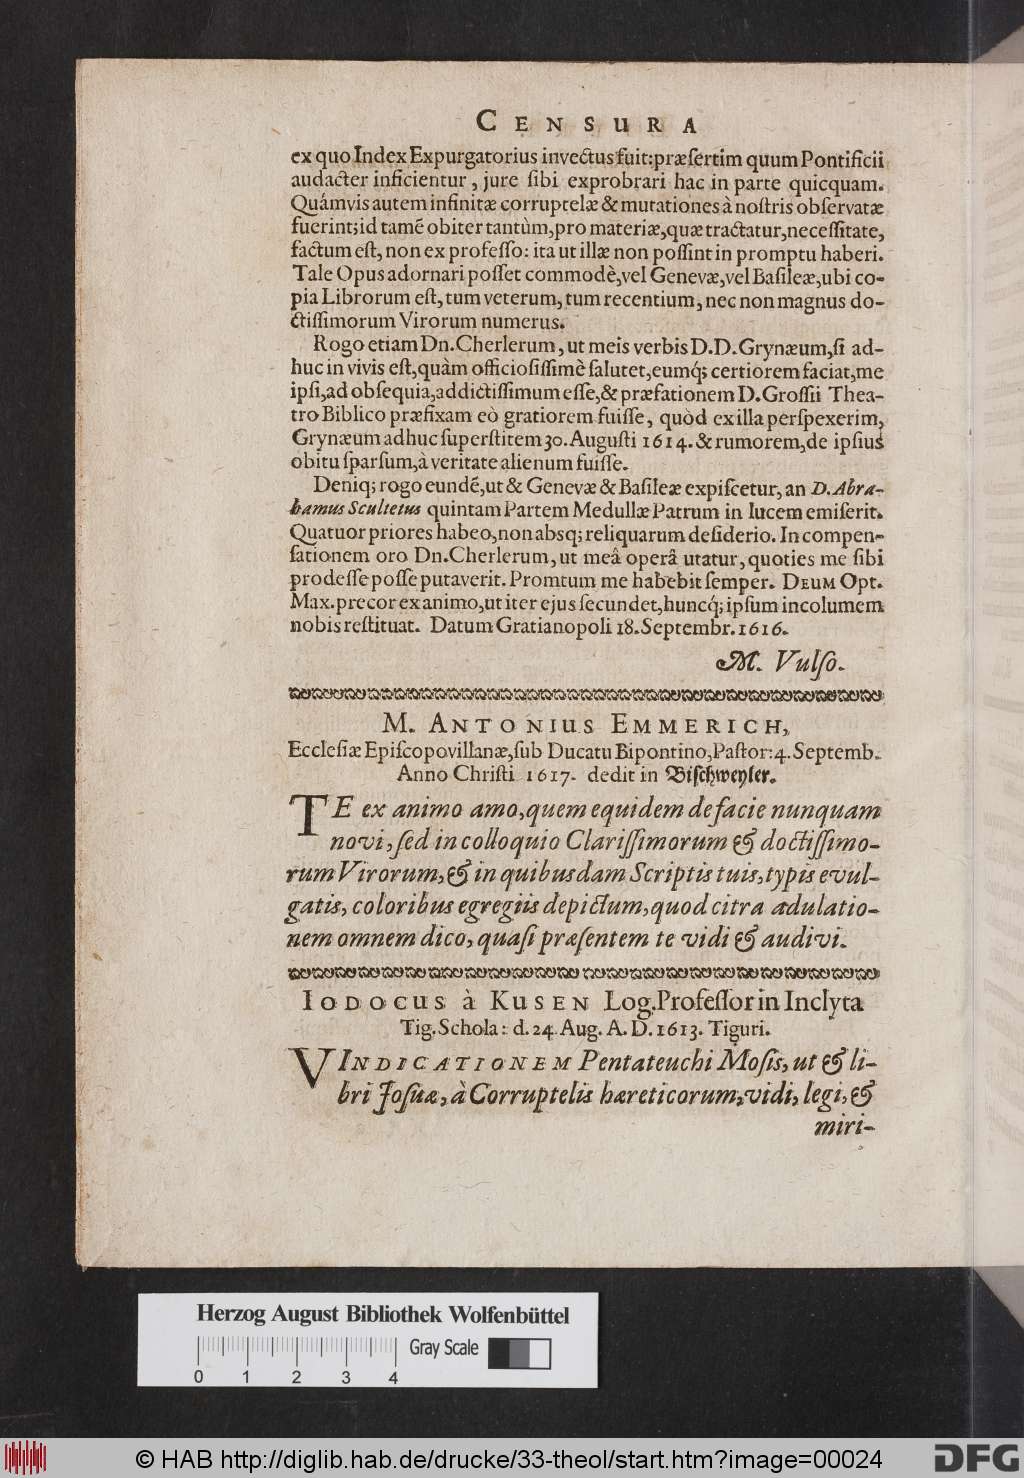 CENSURA
ex quo Index Expurgatorius invectus fuit: præsertim quum Pontificii
audacter inficientur, jure sibi exprobrari hac in parte quicquam.
Quámvis autem infinitæ corruptelæ & mutationes à nostris observatæ
fuerint; id tamē obiter tantùm, pro materiæ, quæ tractatur, necessitate,
factum est, non ex professo: ita ut illæ non possint in promptu haberi.
Tale Opus adornari posset commodè, vel Genevæ, vel Basileæ, ubi co-
pia Librorum est, tum veterum, tum recentium, nec non magnus do-
ctissimorum Virorum numerus.
Rogo etiam Dn. Cherlerum, ut meis verbis D.D. Grynæum, si ad-
huc in vivis est, quàm officiosissimè salutet, eumq́; certiorem faciat, me
ipsi, ad obsequia, addictissimum esse, & præfationem D. Grossii Thea-
tro Biblico præfixam eò gratiorem fuisse, quòd ex illa perspexerim,
Grynæum adhuc superstitem 30. Augusti 1614. & rumorem, de ipsius
obitu sparsum, à veritate alienum fuisse.
Deniq; rogo eundē, ut & Genevæ & Basileæ expiscetur, an D. Abra-
hamus Scultetus quintam Partem Medullæ Patrum in lucem emiserit.
Quatuor priores habeo, non absq; reliquarum desiderio. In compen-
sationem oro Dn. Cherlerum, ut meâ operâ utatur, quoties me sibi
prodesse posse putaverit. Promtum me habebit semper. DEUM Opt.
Max. precor ex animo, ut iter ejus secundet, huncq́; ipsum incolumem
nobis restituat. Datum Gratianopoli 18. Septembr. 1616.
M. Vulso.
M. ANTONIUS EMMERICH,
Ecclesiæ Episcopovillanæ, sub Ducatu Bipontino, Pastor: 4. Septemb.
Anno Christi 1617. dedit in Bischweyler.
TE ex animo amo, quem equidem de facie nunquam
novi, sed in colloquio Clarissimorum & doctissimo-
rum Virorum, & in quibusdam Scriptis tuis, typis evul-
gatis, coloribus egregiis depictum, quod citra adulatio-
nem omnem dico, quasi præsentem te vidi & audivi.
IODOCUS à KUSEN Log. Professor in Inclyta
Tig. Schola: d. 24. Aug. A. D. 1613. Tiguri.
VINDICATIONEM Pentateuchi Mosis, ut & li-
bri Josuæ, à Corruptelis hæreticorum, vidi, legi, &
miri-
Herzog August Bibliothek Wolfenbüttel
Gray Scale
0 1 2 3 4
© HAB http://diglib.hab.de/drucke/33-theol/start.htm?image=00024
DFG